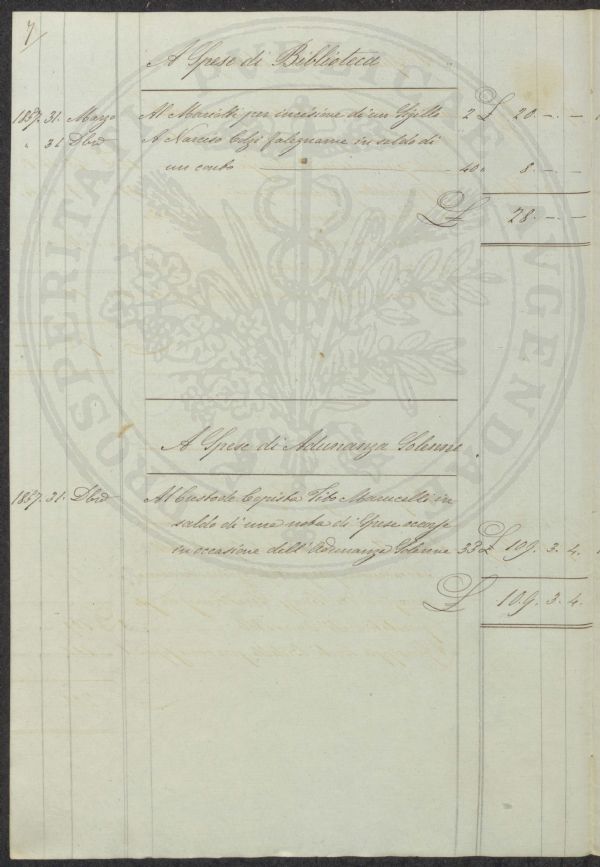 7
A Spese di Biblioteca
1857. 31. Marzo Al per incisione di un Sigillo 2 £ 20. -. -
" 31 Dbre A Narciso falegname in saldo di
un conto 40 " 8. - -
£ 28. - -
A Spese di Adunanza Solenne.
1857. 31. Dbre Al Custode Copista Tito Marucelli in
saldo di una nota di Spese occorse
in occasione dell'Adunanza Solenne 33 £ 109. 3. 4.
£ 109. 3. 4.
PROSPERITATI PUBLICAE AUGENDAE